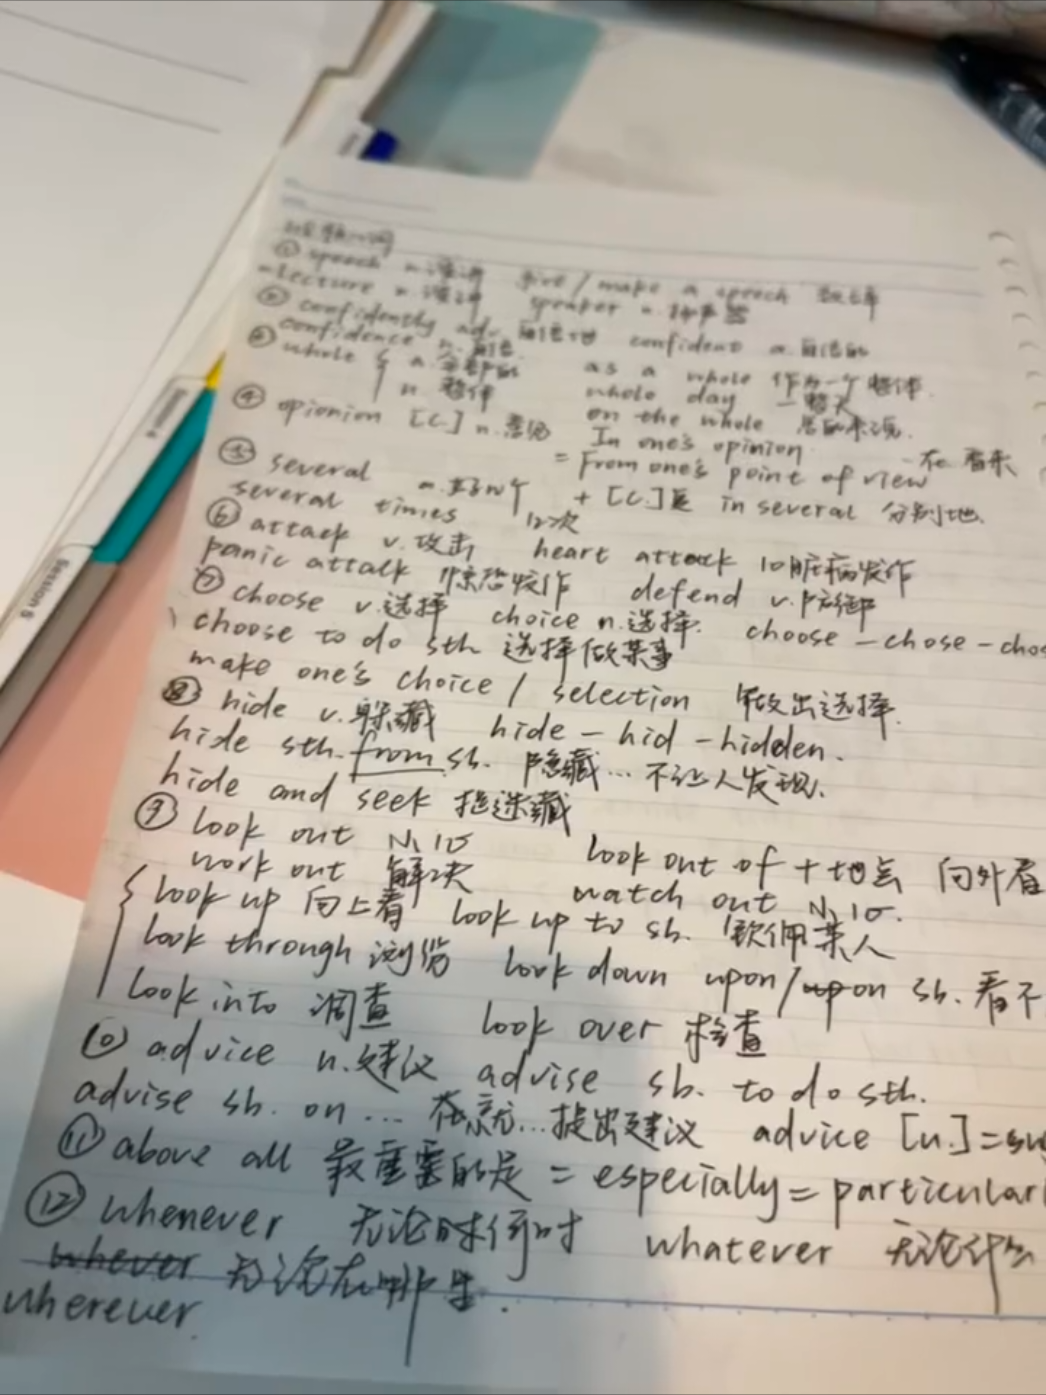 ① speech n.演讲 give / make a speech
- Lecture n.演讲 speaker n.扬声器
② confidently ad. 自信地 confident a.自信的
confidence n.自信.
③ whole { a.全部的 as a whole 作为一个整体.
n.整体 whole day 一整天
on the whole 总的来说.
④ opionion [C] n.意见 In one's opinion
= From one's point of view 在 看来
⑤ several a.好几个 + [C.]复 in several 分别地.
several times 几次
⑥ attack v.攻击 heart attack 心脏病发作
panic attack 惊恐发作 defend v.防御
⑦ choose v.选择 choice n.选择. choose – chose – chos
choose to do sth 选择做某事
make one's choice / selection 做出选择.
⑧ hide v.躲藏 hide – hid – hidden.
hide sth. from sb. 隐藏... 不让人发现.
hide and seek 捉迷藏
⑨ look out 小心 look out of + 地点 向外看
work out 解决 watch out 小心.
look up 向上看 look up to sb. 钦佩某人
look through 浏览 look down upon/on sb. 看不
look into 调查 look over 检查
⑩ advice n.建议 advise sb. to do sth.
advise sb. on ... 在就...提出建议 advice [u.] = su
⑪ above all 最重要的是 = especially = particularl
⑫ whenever 无论何时 whatever 无论什么
whever 无论在哪里.
wherever.